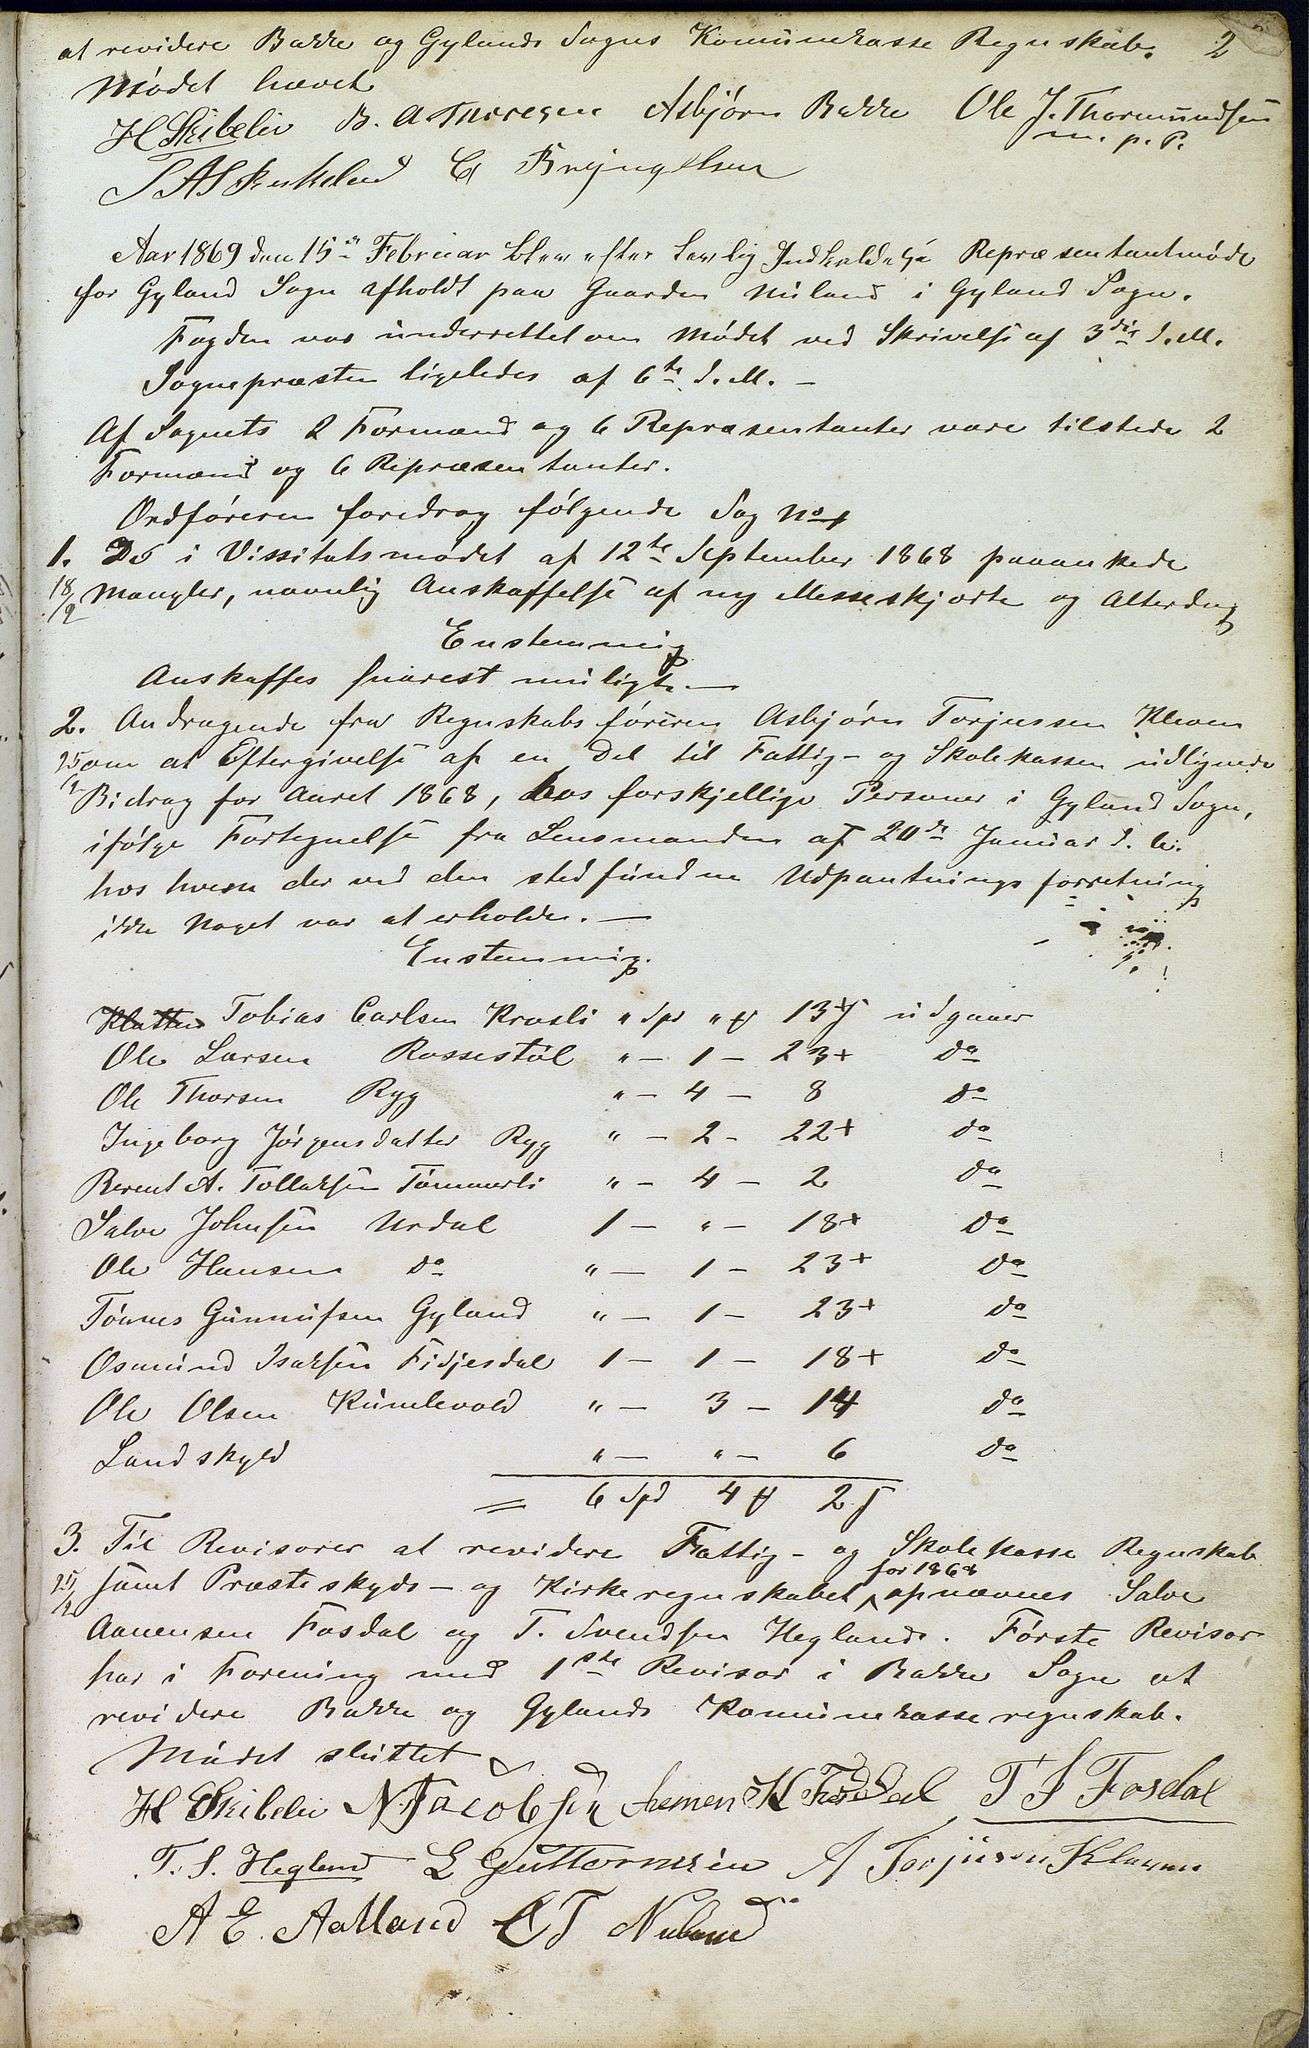 at revidere Bakke og Gylands Sogns Komunekasse Regnskab. 2
Mødet hævet
H Skibeliv B. A. Thoresen Asbjørn Bakke Ole J. Thormundsen
m. p. P.
T A S C Bryngelsen
Aar 1869 den 15de Februar blev efter lovlig Indkaldelse Repræsentantmøde
for Gyland Sogn afholdt paa Gaarden Nuland i Gyland Sogn.
Fogden var underrettet om Mødet ved Skrivelse af 3die d.M.
Sognepræsten ligeledes af 6te d.M. –
Af Sognets 2 Formænd og 6 Repræsentanter vare tilstede 2
Formænd og 6 Repræsentanter.
Ordføreren foredrog følgende Sag No
1. De i Vissitatsmødet af 12te September 1868 paaankede
18/2 Mangler, navnlig Anskaffelse af ny Messeskjorte og Alterdug
Enstemmig
Anskaffes snarest muligt. –
2. Andragende fra Regnskabsføreren Asbjørn Torjussen Kleven
25/2 om at Eftergivelse af en Del til Fattig- og Skolekassen udlignede
Bidrag for Aaret 1868, hos forskjellige Personer i Gyland Sogn,
ifølge Fortegnelse fra Lensmanden af 20de Januar d. A.
hos hvem der ved den stedfundne Udpantningsforretning
ikke Noget var at erholde. –
Enstemmig.
Tobias Carlsen Krosli " Spd " 13 udgaaer
Ole Larsen Rossestøl " – 1 – 23+ do
Ole Thorsen Ryg " – 4 – 8 do
Ingeborg Jørgensdatter Ryg " – 2 – 22+ do
Berent A. Tollaksen Tømmerli " – 4 – 2 do
Salve Johnsen Urdal 1 – " – 18+ do
Ole Hansen do " – 1 – 23+ do
Tønnes Gunnufsen Gyland " – 1 – 23+ do
Osmund Isaksen Fidjesdal 1 – 1 – 18+ do
Ole Olsen Kumlevold " – 3 – 14 do
Landskyld " – " – 6 do
= 6 Spd 4 2
3. Til Revisorer at revidere Fattig- og Skolekasse Regnskab
for 1868
25/2 samt Præsteskyds- og Kirkeregnskabet opnævnes Salve
Aanensen Fosdal og T. Svendsen Hegland. Første Revisor
har i Forening med 1ste Revisor i Bakke Sogn at
revidere Bakke og Gylands Komunekasseregnskab.
Mødet sluttet
H Skibeliv N. Jacobsen Aanen K Fosdal T S Fosdal
T. S. Hegland L Guttormsen A Torjusen Kleven
A E. Aatland T Nuland